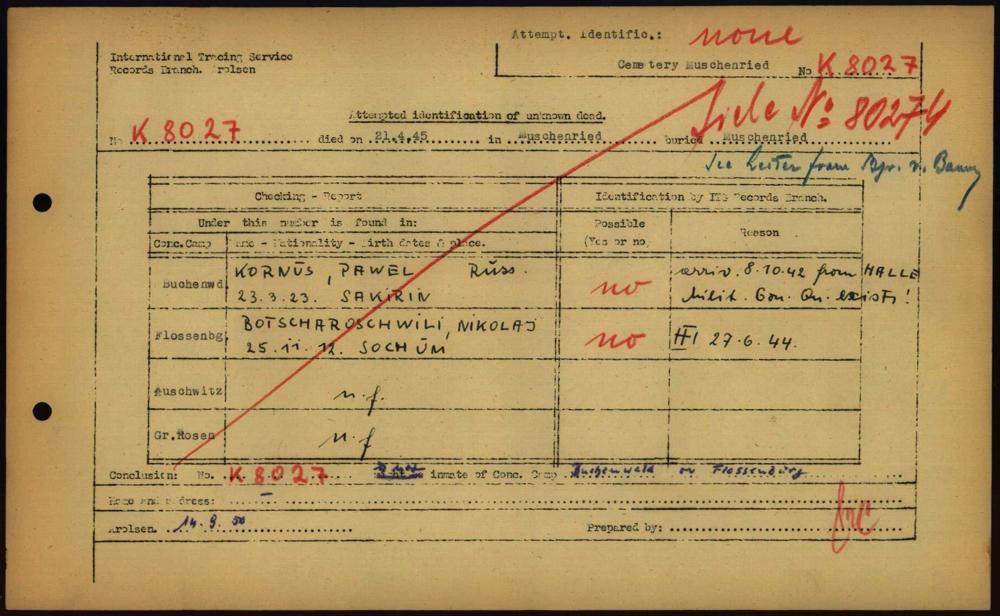 Attempt. Identific.: none
International Tracing Service
Records Branch. Arolsen
Cemetery Muschenried
No K 8027
Attempted identification of unknown dead.
Siehe No 80274
No K 8027 died on 21.4.45 in Muschenried buried Muschenried
See Letter from Bgr. v.
Checking - Report
Identification by ITS Records Branch.
Under this number is found in:
Possible (Yes or no)
Reason
Conc.Camp
Name - Nationality - Birth dates & place.
Buchenwd
KORNUS, PAWEL RUSS.
23.3.23. SAKIRIN
no
arriv. 8.10.42 from HALLE
Milit. Gov. Qu. exists!
Flossenbg
BOTSCHAROSCHWILI, NIKOLAJ
25.11.12. SOCHUM
no
27.6.44.
Auschwitz
n.f.
Gr.Rosen
n.f
Conclusion: No. K 8027 inmate of Conc. Camp Buchenwald or Flossenbürg
Name and address:
Arolsen. 14.9.50
Prepared by: